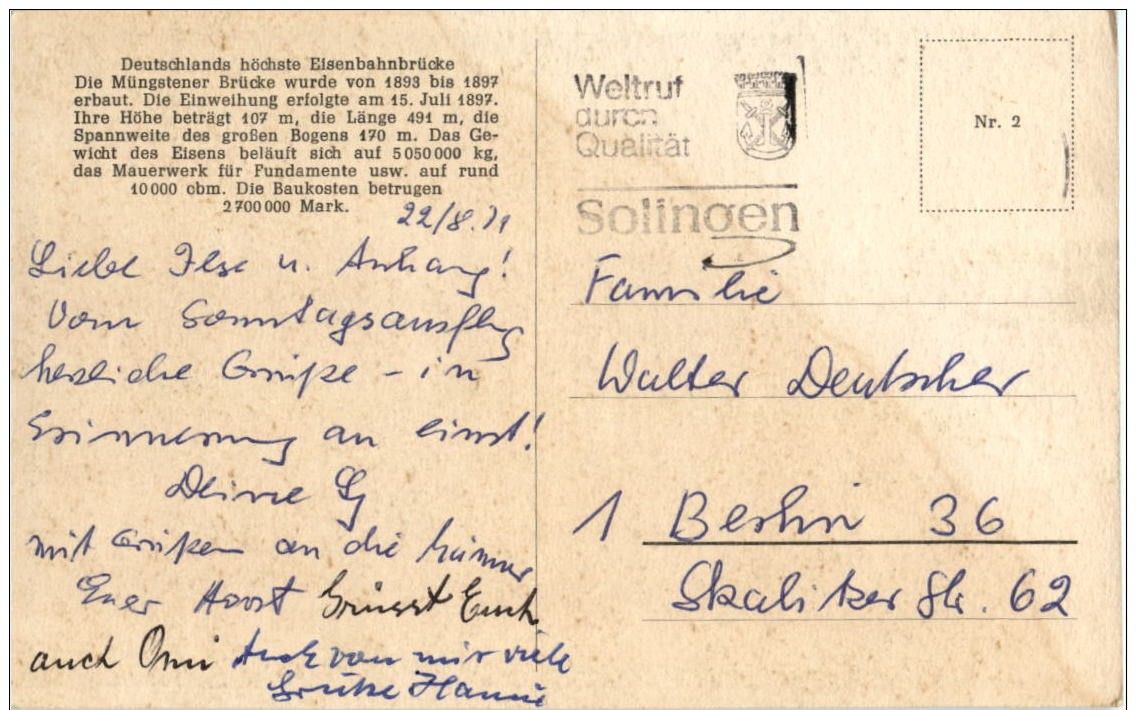 Deutschlands höchste Eisenbahnbrücke
Die Müngstener Brücke wurde von 1893 bis 1897
erbaut. Die Einweihung erfolgte am 15. Juli 1897.
Ihre Höhe beträgt 107 m, die Länge 491 m, die
Spannweite des großen Bogens 170 m. Das Ge-
wicht des Eisens beläuft sich auf 5 050 000 kg,
das Mauerwerk für Fundamente usw. auf rund
10 000 cbm. Die Baukosten betrugen
2 700 000 Mark.
22/8. 71
Liebe Ilse u. Anhang!
Vom Sonntagsausflug
herzliche Grüße – in
Erinnerung an einst!
Deine
mit Grüßen an die Männer
Euer Horst Grüsst Euch
auch Omi Auch von mir viele
Grüße Hanni
Weltruf
durch
Qualität
Solingen
Nr. 2
Familie
Walter Deutscher
1 Berlin 36
Skalitzer Str. 62